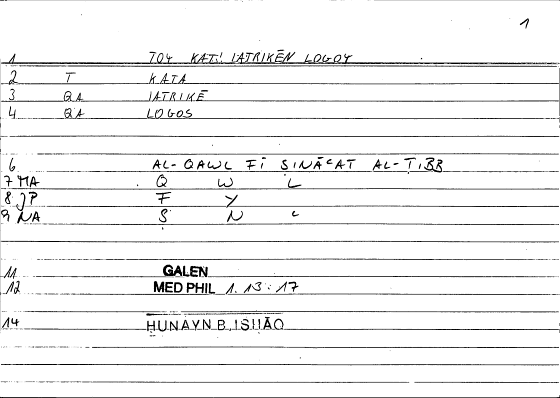 1
1 TOY KAT' IATRIKĒN LOGOY
2 T KATA
3 QA IATRIKĒ
4 QA LOGOS
6 AL-QAWL FĪ ṢINĀʿAT AL-ṬIBB
7 MA Q W L
8 JP F Y
9 NA Ṣ N ʿ
11 GALEN
12 MED PHIL 1.13:17
14 ḤUNAYN B. ISḤĀQ